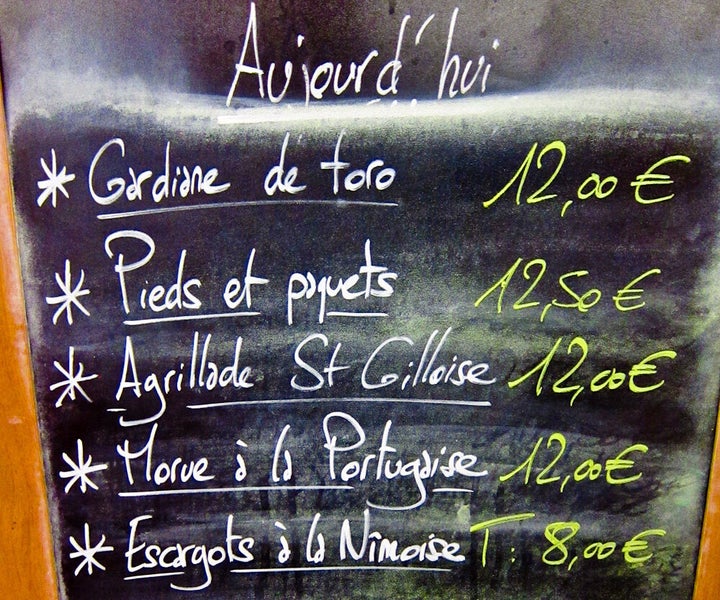 Aujourd'hui
* Gardiane de toro 12,00 €
* Pieds et paquets 12,50 €
* Agrillade St Gilloise 12,00 €
* Morue à la Portugaise 12,00 €
* Escargots à la Nîmoise T: 8,00 €